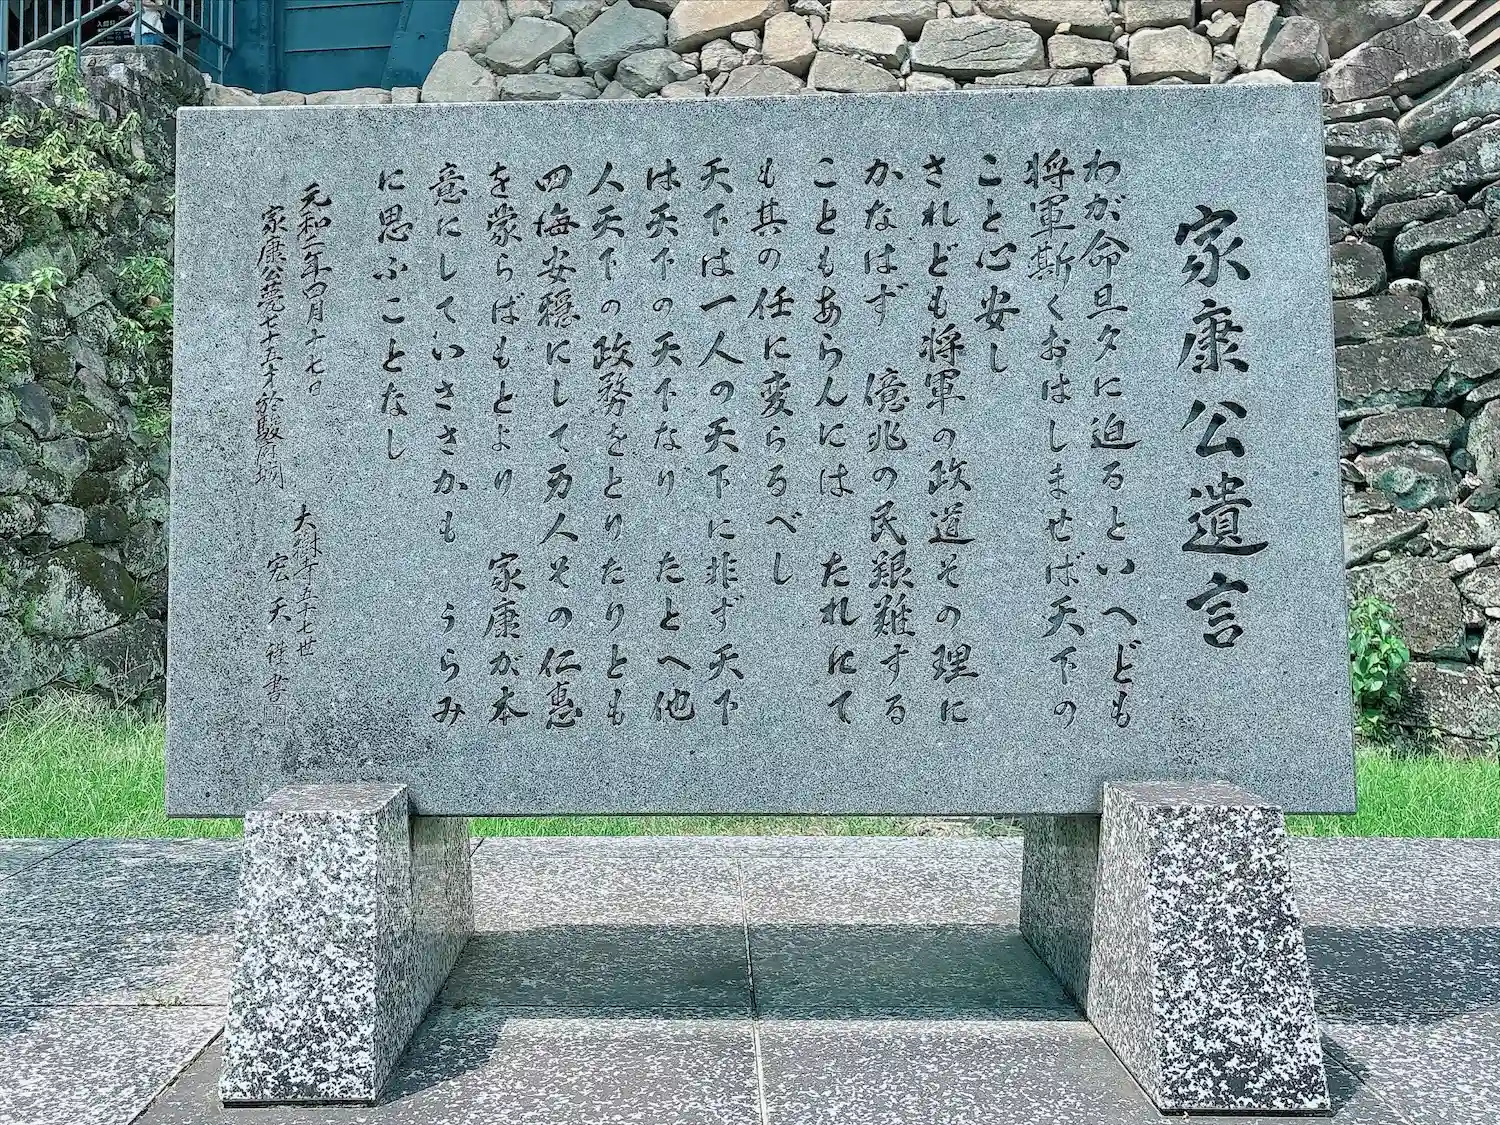 家康公遺言
わが命旦夕に迫るといへども
将軍斯くおはしませば天下の
こと心安し
されども将軍の政道その理に
かなはず 億兆の民艱難する
こともあらんには たれにて
も其の任に変らるべし
天下は一人の天下に非ず天下
は天下の天下なり たとへ他
人天下の政務をとりたりとも
四海安穏にして万人その仁恵
を蒙らばもとより 家康が本
意にしていささかも うらみ
に思ふことなし
元和二年四月十七日
家康公薨七十五才於駿府城
大樹寺五十七世
宏天 書